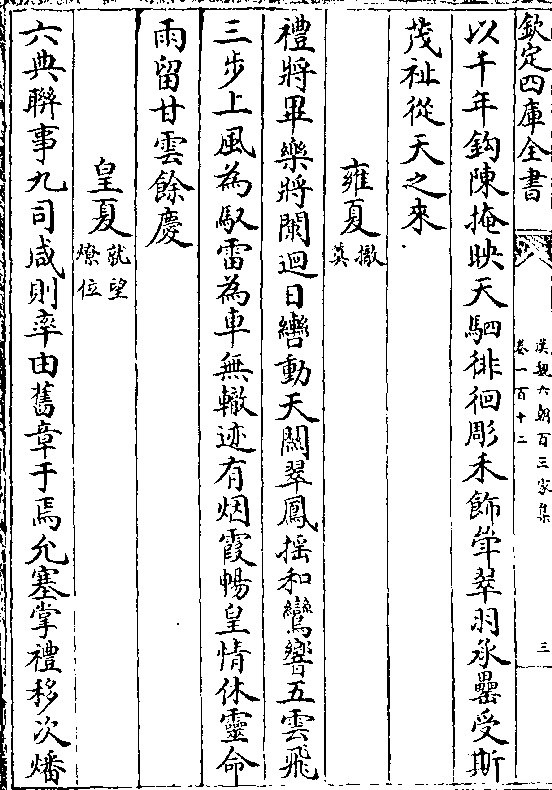 欽定四庫全書
漢魏六朝百三家集
卷一百十二
三
以千年鈎陳掩映天駟徘徊彫禾飾斝翠羽承罍受斯
茂祉從天之來
雍夏
撤奠
禮將畢樂將闌迴日轡動天關翠鳳揺和鸞響五雲飛
三步上風為馭雷為車無轍迹有烟霞暢皇情休靈命
雨留甘雲餘慶
皇夏
就望
燎位
六典聯事九司咸則率由舊章于焉允塞掌禮移次燔